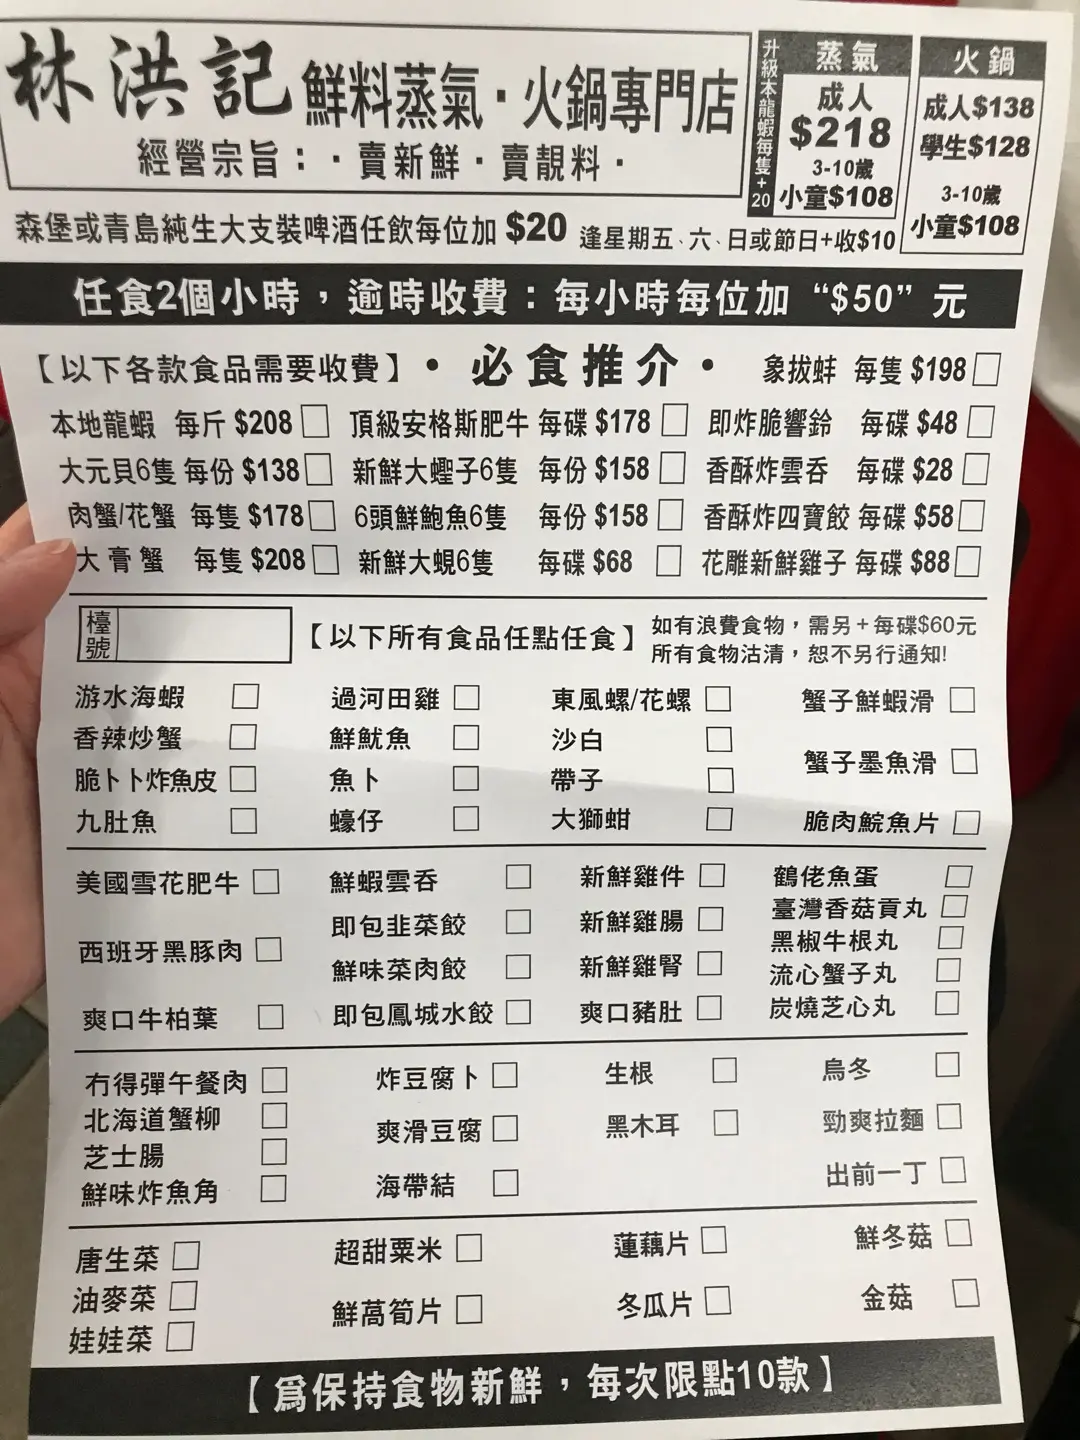 林洪記 鮮料蒸氣·火鍋專門店
經營宗旨：·賣新鮮·賣靚料·
升級本龍蝦每隻+20
蒸氣
成人
$218
3-10歲
小童$108
火鍋
成人$138
學生$128
3-10歲
小童$108
森堡或青島純生大支裝啤酒任飲每位加 $20 逢星期五、六、日或節日+收$10
任食2個小時，逾時收費：每小時每位加“$50”元
【以下各款食品需要收費】·必食推介· 象拔蚌 每隻 $198 □
本地龍蝦 每斤 $208 □ 頂級安格斯肥牛 每碟 $178 □ 即炸脆響鈴 每碟 $48 □
大元貝6隻 每份 $138 □ 新鮮大蟶子6隻 每份 $158 □ 香酥炸雲吞 每碟 $28 □
肉蟹/花蟹 每隻 $178 □ 6頭鮮鮑魚6隻 每份 $158 □ 香酥炸四寶餃 每碟 $58 □
大膏蟹 每隻 $208 □ 新鮮大蜆6隻 每碟 $68 □ 花雕新鮮雞子 每碟 $88 □
檯號
【以下所有食品任點任食】
如有浪費食物，需另+每碟$60元
所有食物沽清，恕不另行通知!
游水海蝦 □ 過河田雞 □ 東風螺/花螺 □ 蟹子鮮蝦滑 □
香辣炒蟹 □ 鮮魷魚 □ 沙白 □ 蟹子墨魚滑 □
脆卜卜炸魚皮 □ 魚卜 □ 帶子 □
九肚魚 □ 蠔仔 □ 大獅蚶 □ 脆肉鯇魚片 □
美國雪花肥牛 □ 鮮蝦雲吞 □ 新鮮雞件 □ 鶴佬魚蛋 □
即包韭菜餃 □ 新鮮雞腸 □ 臺灣香菇貢丸 □
西班牙黑豚肉 □ 黑椒牛根丸 □
鮮味菜肉餃 □ 新鮮雞腎 □ 流心蟹子丸 □
爽口牛柏葉 □ 即包鳳城水餃 □ 爽口豬肚 □ 炭燒芝心丸 □
冇得彈午餐肉 □ 炸豆腐卜 □ 生根 □ 烏冬 □
北海道蟹柳 □ 爽滑豆腐 □ 黑木耳 □ 勁爽拉麵 □
芝士腸 □
鮮味炸魚角 □ 海帶結 □ 出前一丁 □
唐生菜 □ 超甜粟米 □ 蓮藕片 □ 鮮冬菇 □
油麥菜 □ 鮮萵筍片 □ 冬瓜片 □ 金菇 □
娃娃菜 □
【爲保持食物新鮮，每次限點10款】